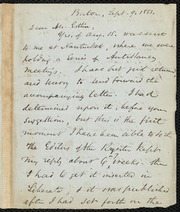 Boston, Sept. 9, 1851.
Dear Mr. Estlin,
Yrs. of Aug. 15, was sent
to me at Nantucket, where we were
holding a series of Antislavery
meetings. I have but just returned
and hasten to send forward the
accompanying letter. I had
determined upon it, before your
suggestion, but this is the first
moment I have been able to do
the Editors of the
my reply about G. Weeks. I
have to get it inserted in
Liberator, & it was published
after I set forth on the